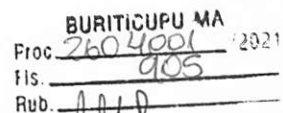 BURITICUPU MA
Proc. 2604001 /2021
Fls. 905
Rub.